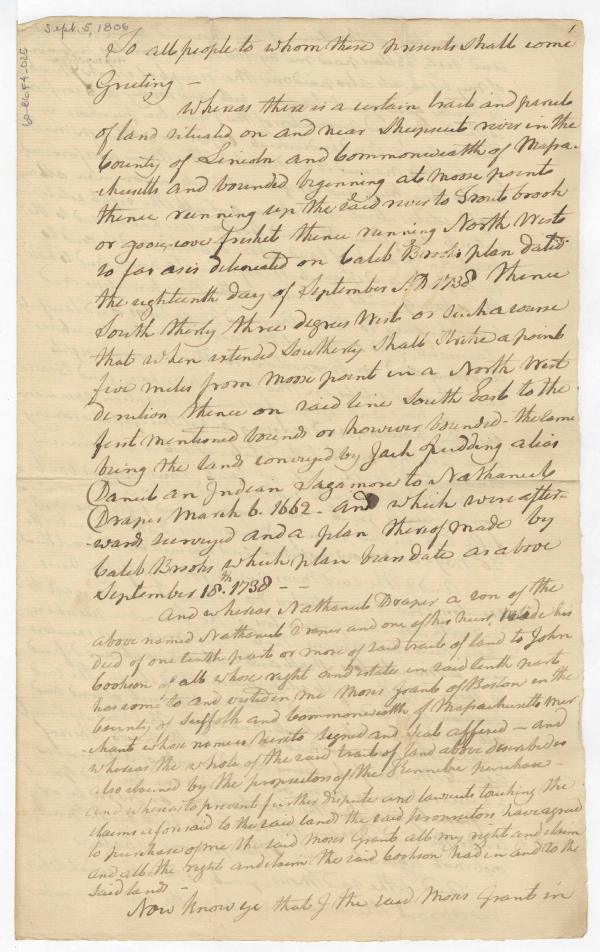 Sept. 5, 1806
1
To all people to whom these presents shall come
Greeting -
Whereas there is a certain tract and parcel
of land situated on and near Sheepscut river in the
County of Lincoln and Commonwealth of Massa-
-chusetts and bounded beginning at Moose point
thence running up the said river to Trout brook
or goose cove freshet thence running North West
so far as is delineated on Caleb Brooks plan dated
the eighteenth day of September A.D 1738 thence
South thirty three degrees West or such a course
that when extended Southerly shall strike a point
five miles from Moose point in a North West
direction thence on said line South East to the
first mentioned bounds or however bounded - the same
being the lands conveyed by Jack Pudding alias
Daniel an Indian Sagamore to Nathaniel
Draper March 6. 1662 - and which were after-
-wards surveyed and a plan thereof made by
Caleb Brooks which plan bears date as above
September 18th. 1738 - -
And whereas Nathaniel Draper a son of the
above named Nathaniel Draper and one of his heirs, made his
deed of one tenth part or more of said tract of land to John
Cookson all whose right and estate in said tenth part
has come to and vested in me Moses Grant of Boston in the
County of Suffolk and Commonwealth of Massachusetts mer
-chant whose name is hereto signed and seal affixed - and
whereas the whole of the said tract of land above described is
also claimed by the proprietors of the Kennebec purchase -
and whereas to prevent further dispute and lawsuits touching the
claims aforesaid to the said land the said proprietors have agreed
to purchase of me the said Moses Grant all my right and claim
and all the right and claim the said Cookson had in and to the
said land -
Now know ye that I the said Moses Grant in